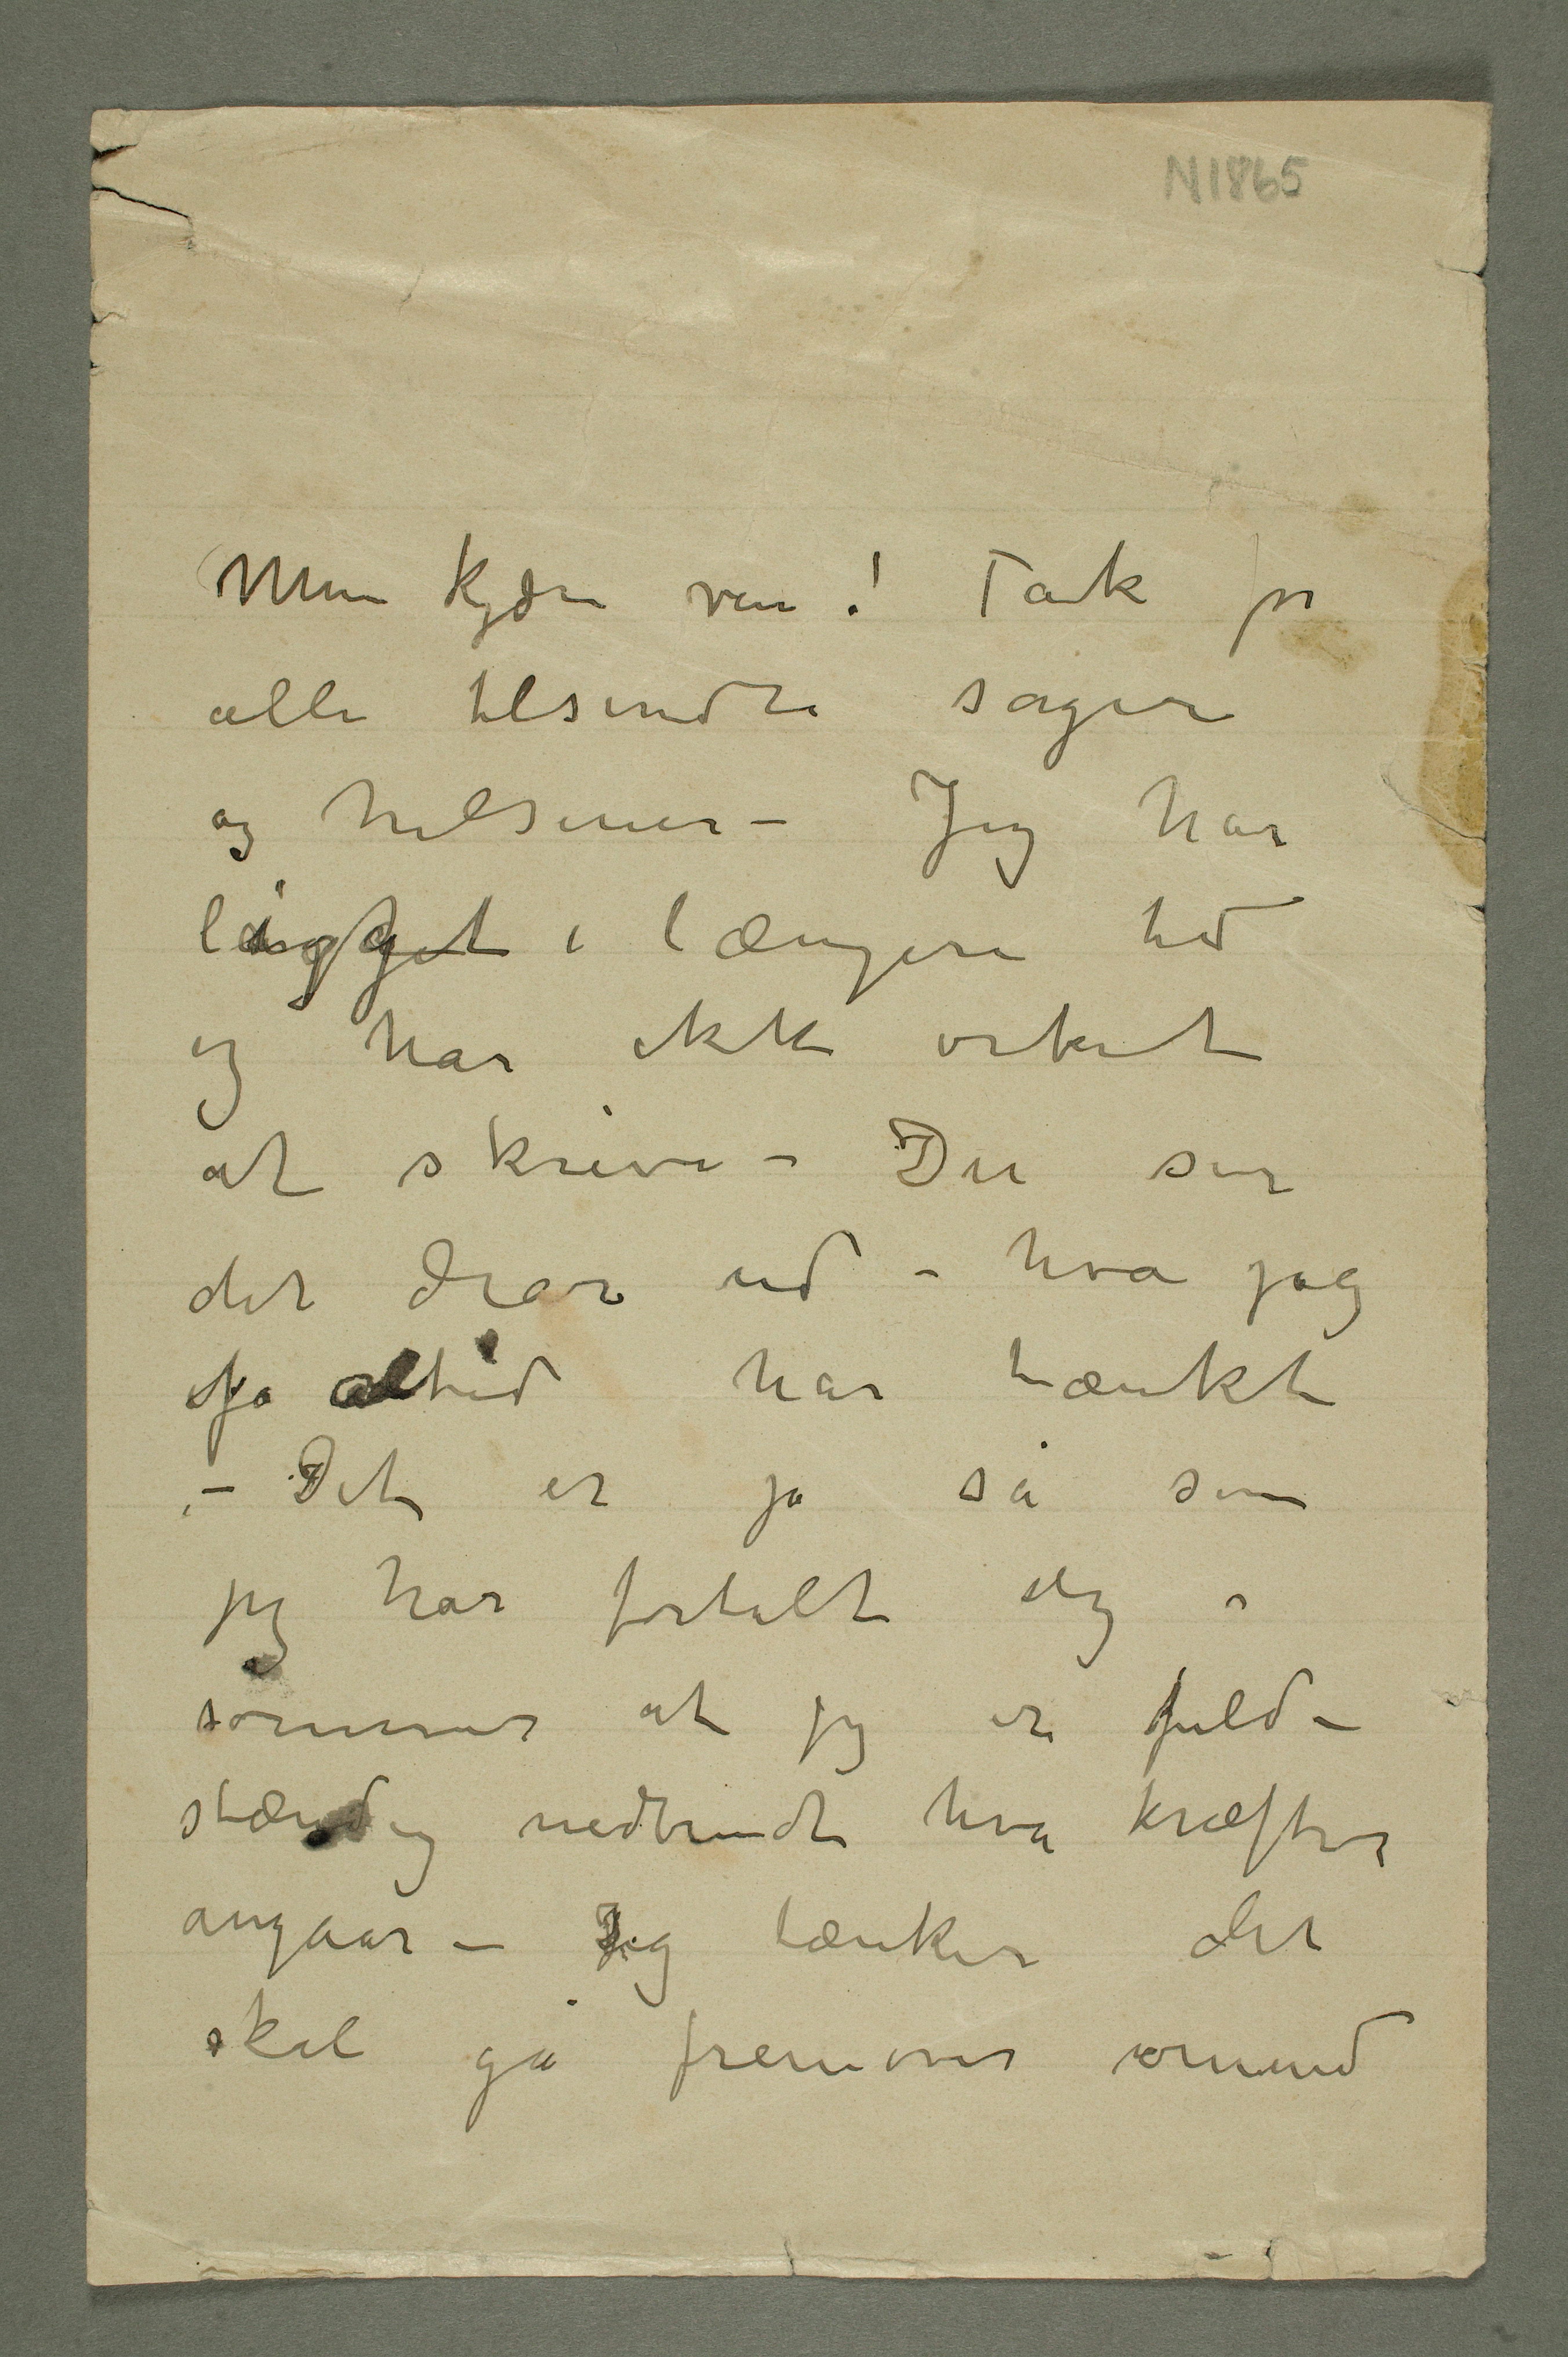 N1865
Min kjære ven! Tak for
alle tilsendte sager
og hilsener – Jeg har
ligget i længere tid
og har ikke orket
at skrive – Du ser
det drar ud – hva jeg
jo altid har tænkt
– Det er jo så som
jeg har fortalt dig i
sommer at jeg er fuld-
stændig nedbrudt hva kræfter
angaar – Jeg tænker det
skal gå fremover